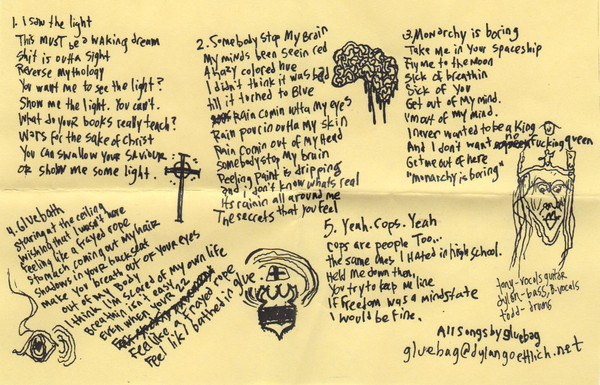 1. I saw the light
This MUST be a WAKING dream
Shit is outta sight
Reverse Mythology
You want me to see the light?
Show me the light. You can't.
What do your books really teach?
Wars for the sake of Christ
You can swallow your saviour
or show me some light.
2. Somebody Stop My Brain
My minds been seein red
A hazy colored hue
I didn't think it was bad
till it turned to Blue
Rain comin outta my eyes
Rain pourin outta my skin
Rain comin out of my head
Somebody stop my brain
Peeling Paint is dripping
and i don't know whats real
Its rainin all around me
The secrets that you feel
3. Monarchy is boring
Take me in your spaceship
Fly me to the Moon
Sick of breathin
Sick of You
Get out of My mind.
I'm out of my mind.
I never wanted to be a King
And I don't want no fucking queen
Get me out of here
"monarchy is boring"
4. Gluebath
Staring at the ceiling
wishing that I wasn't here
Feeling like a frayed rope
stomach coming out my hair
Shadows in your backseat
make you breath out of your eyes
out of my Body
I think I'm scared of my own life
Breathin isn't easy
Even when your 22
Feel like a frayed rope
Feel like I bathed in glue.
5. Yeah. Cops. Yeah
Cops are people Too...
The same ones I Hated in high school.
Held me down then,
You try to keep me in line
If Freedom was a mindstate
I would be fine.
tony-vocals guitar
dylan-bass, B.vocals
todd-drums
All songs by gluebag
gluebag@dylangoettlich.net